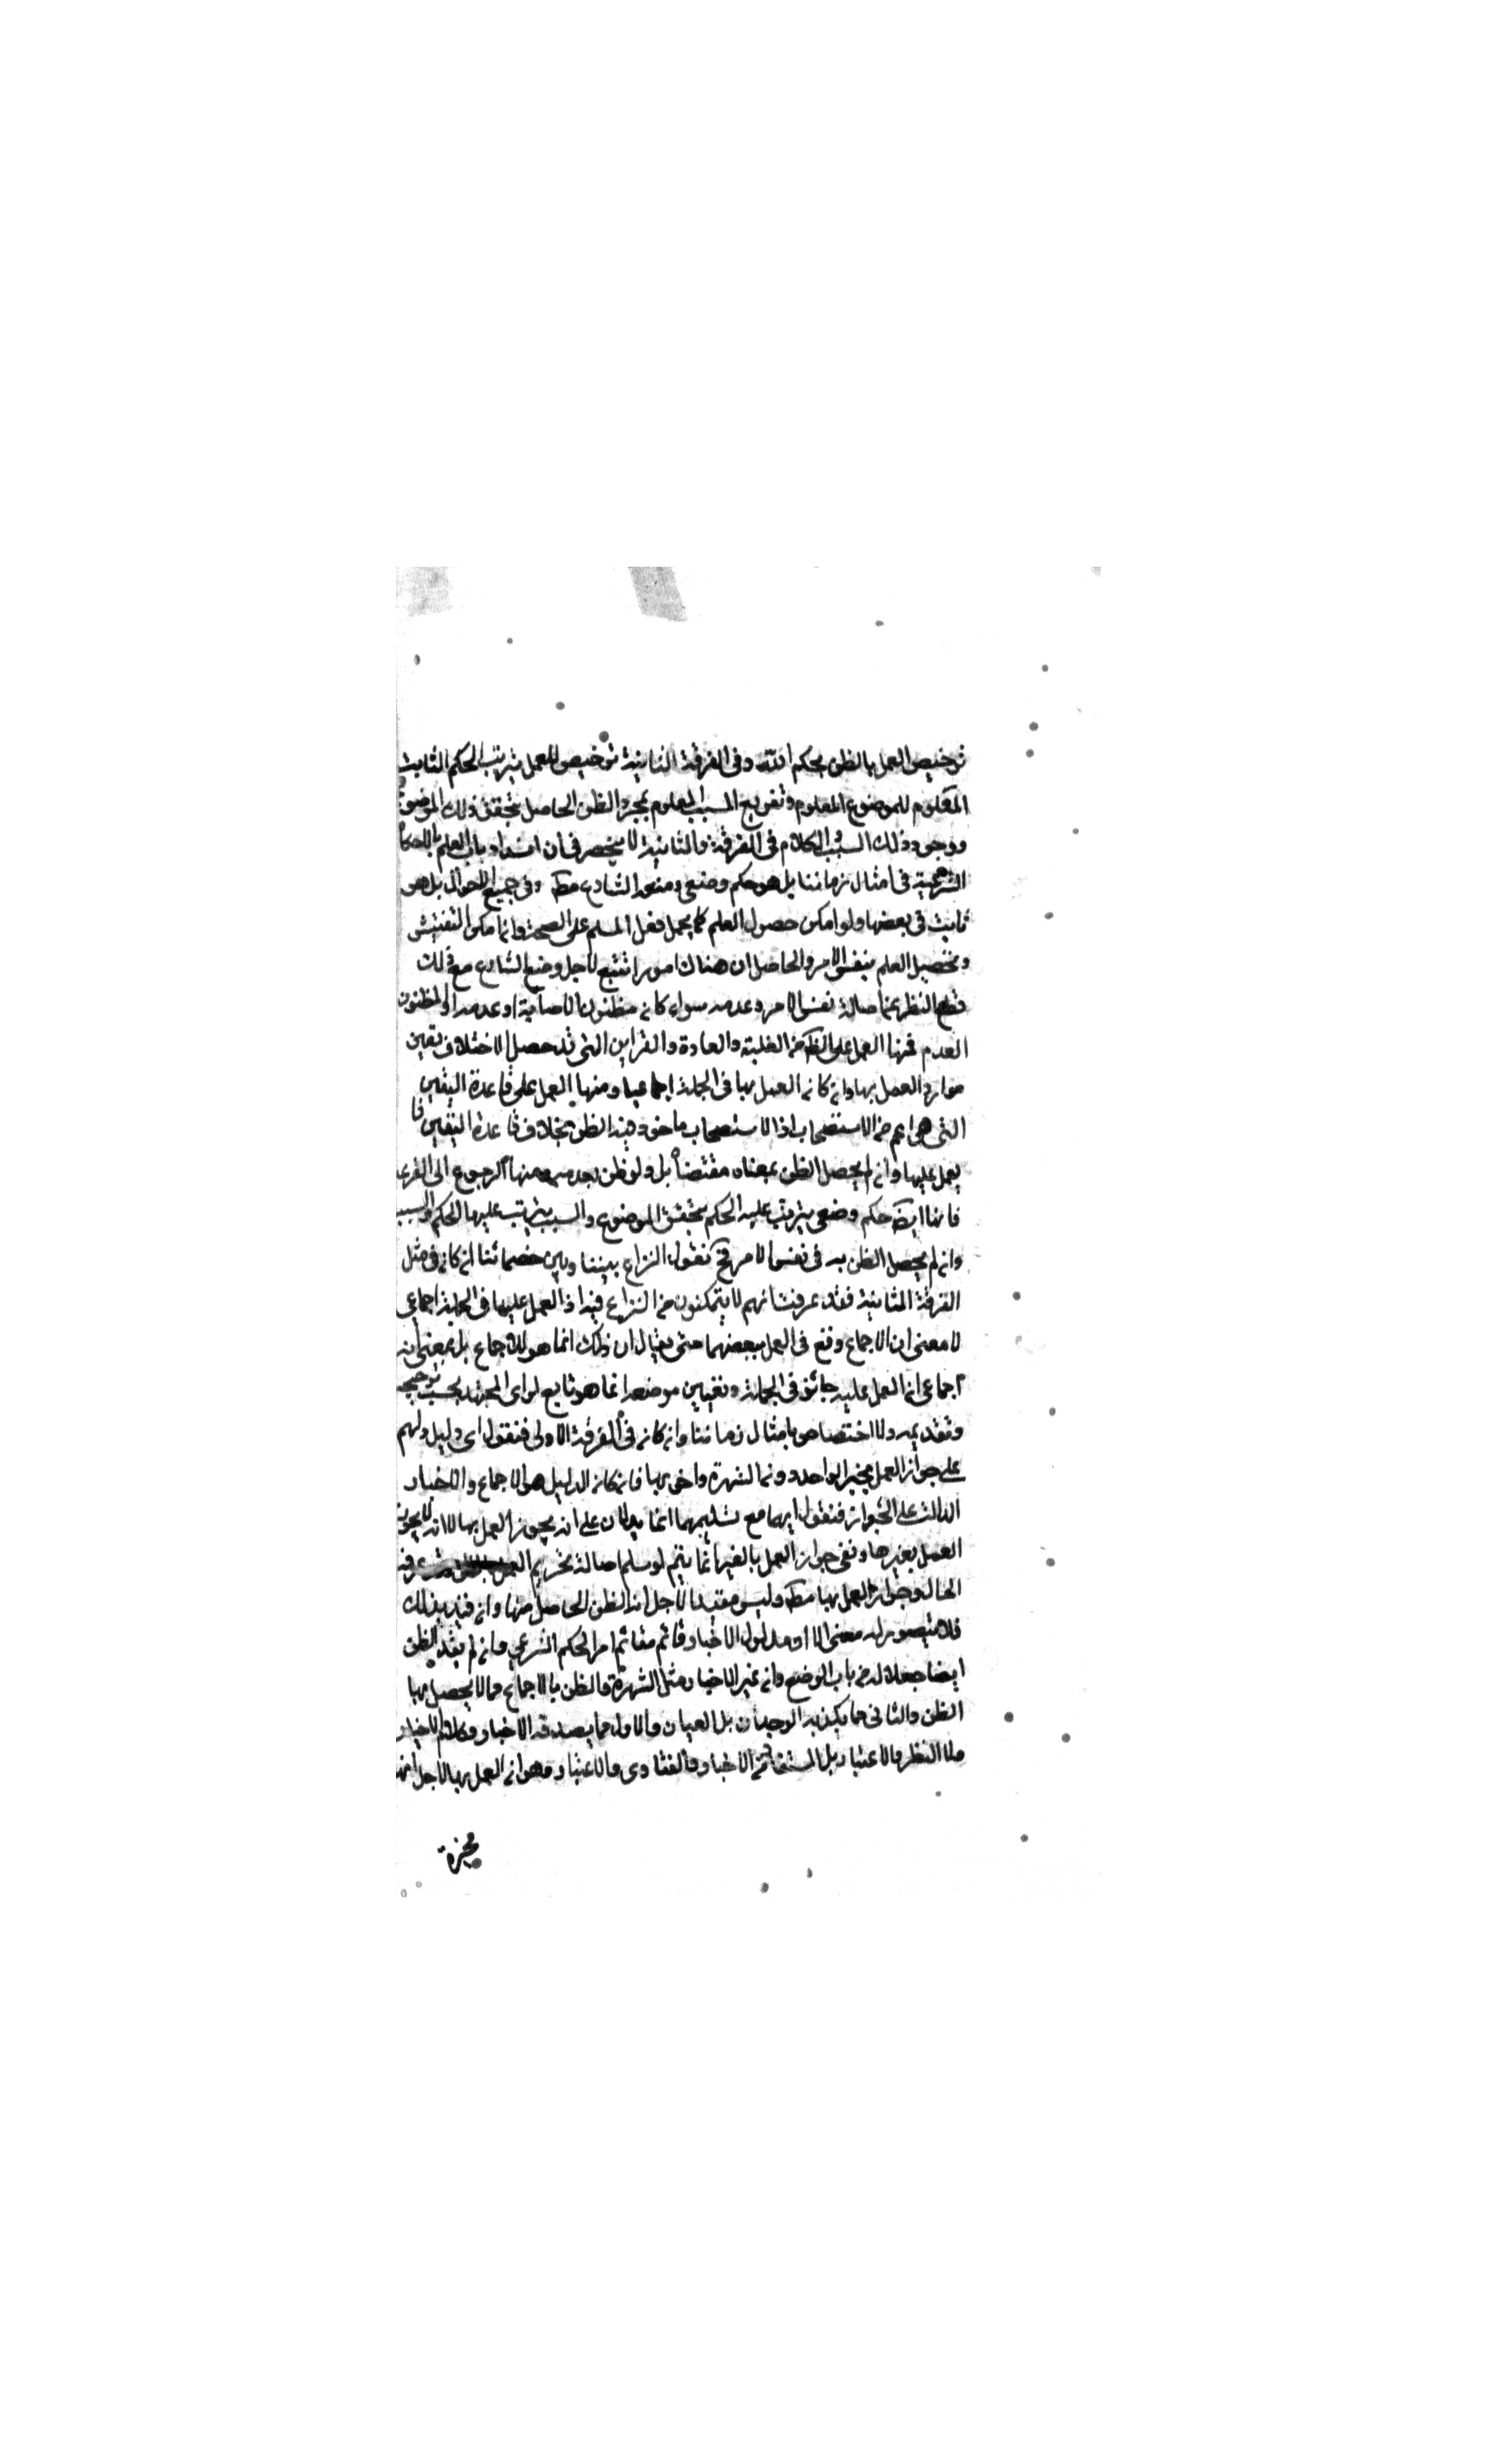 ترخيص العمل بالظن بحكم الله وفى الفرقة الثانية ترخيص للعمل بترتيب الحكم الثابت
المعلوم للموضوع المعلوم وتفريع المسبب المعلوم بمجرد الظن الحاصل بتحقق ذلك الموضوع
ووجود ذلك السبب والكلام فى الفرقة الثانية لا ينحصر فى ان انسداد باب العلم بالاحكام
الشرعية فى امثال زماننا بل هو حكم وضعى ومن الشارع مط وفى جميع الاحوال بل هو
ثابت فى بعضها ولو امكن حصول العلم كما يحمل فعل المسلم على الصحة وان امكن التفتيش
وتحصيل العلم بنفس الامر والحاصل ان هناك امورا تتبع لاجل وضع الشارع مع ذلك
قطع النظر عن اصالة نفس الامر وعدمه سواء كان مظنون الاصابة او عدمه او المظنون
العدم فمنها العمل على الظن من الغلبة والعادة والقراين التى قد حصل الاختلاف فى تعيين
موارد العمل بها وان كان العمل بها فى الجملة اجماعيا ومنها العمل على قاعدة اليقين
التى هى اعم من الاستصحاب اذ الاستصحاب ماخوذ فيه الظن بخلاف قاعدة اليقين فا
يعمل عليها وان لم يحصل الظن بمعناه مقتضاه بل ولو ظن بعدمه ومنها الرجوع الى القرعة
فانها ايض حكم وضعى يترتب عليه الحكم بتحقق الموضوع والسبب يترتب عليها الحكم والسبب
وان لم يحصل الظن به فى نفس الامر فح نقول النزاع بيننا وبين خصمائنا ان كان فى مثل
الفرقة الثانية فقد عرفت انهم لا يتمكنون من النزاع فيه اذ العمل عليها فى الجملة اجماعى
لا معنى ان الاجماع وقع فى العمل ببعضها حتى يقال ان ذلك انما هو للاجماع بل بمعنى انه
اجماعى ان العمل عليه جائز فى الجملة وتعيين موضعه انما هو تابع لراى المجتهد بحسب ترجيحه
وتقديمه ولا اختصاص بامثال زماننا وان كان فى الفرقة الاولى فنقول اى دليل دلهم
على جواز العمل بخبر الواحد دون الشهرة واخويها فان كان الدليل هو الاجماع والاخبار
الدالة على الجواز فنقول انهما مع تسليمهما انما يدلان على انه يجوز العمل بها لا انه لا يجوز
العمل بغيرها ونفى جواز العمل بالغير انما يتم لو سلم اصالة تحريم العمل
الحال وجواز العمل بها مط وليس مقيدا لاجل انه الظن الحاصل منها وان قيد بذلك
فلا يتصور له معنى الا ان مدلول الاخبار قائم مقام الحكم الشرعى وان لم يفد الظن
ايضا جعلا له من باب الوضع وان غير الاخبار مثل الشهرة والظن بالاجماع مما لا يحصل بها
الظن والثانى مما يكذبه الوجدان بل العيان والاول مما يصدقه الاخبار وكلام الاخيار
ملا النظر والاعتبار بل المستفاد من الاخبار والفتاوى والاعتبار وهو ان العمل بها لاجل انها